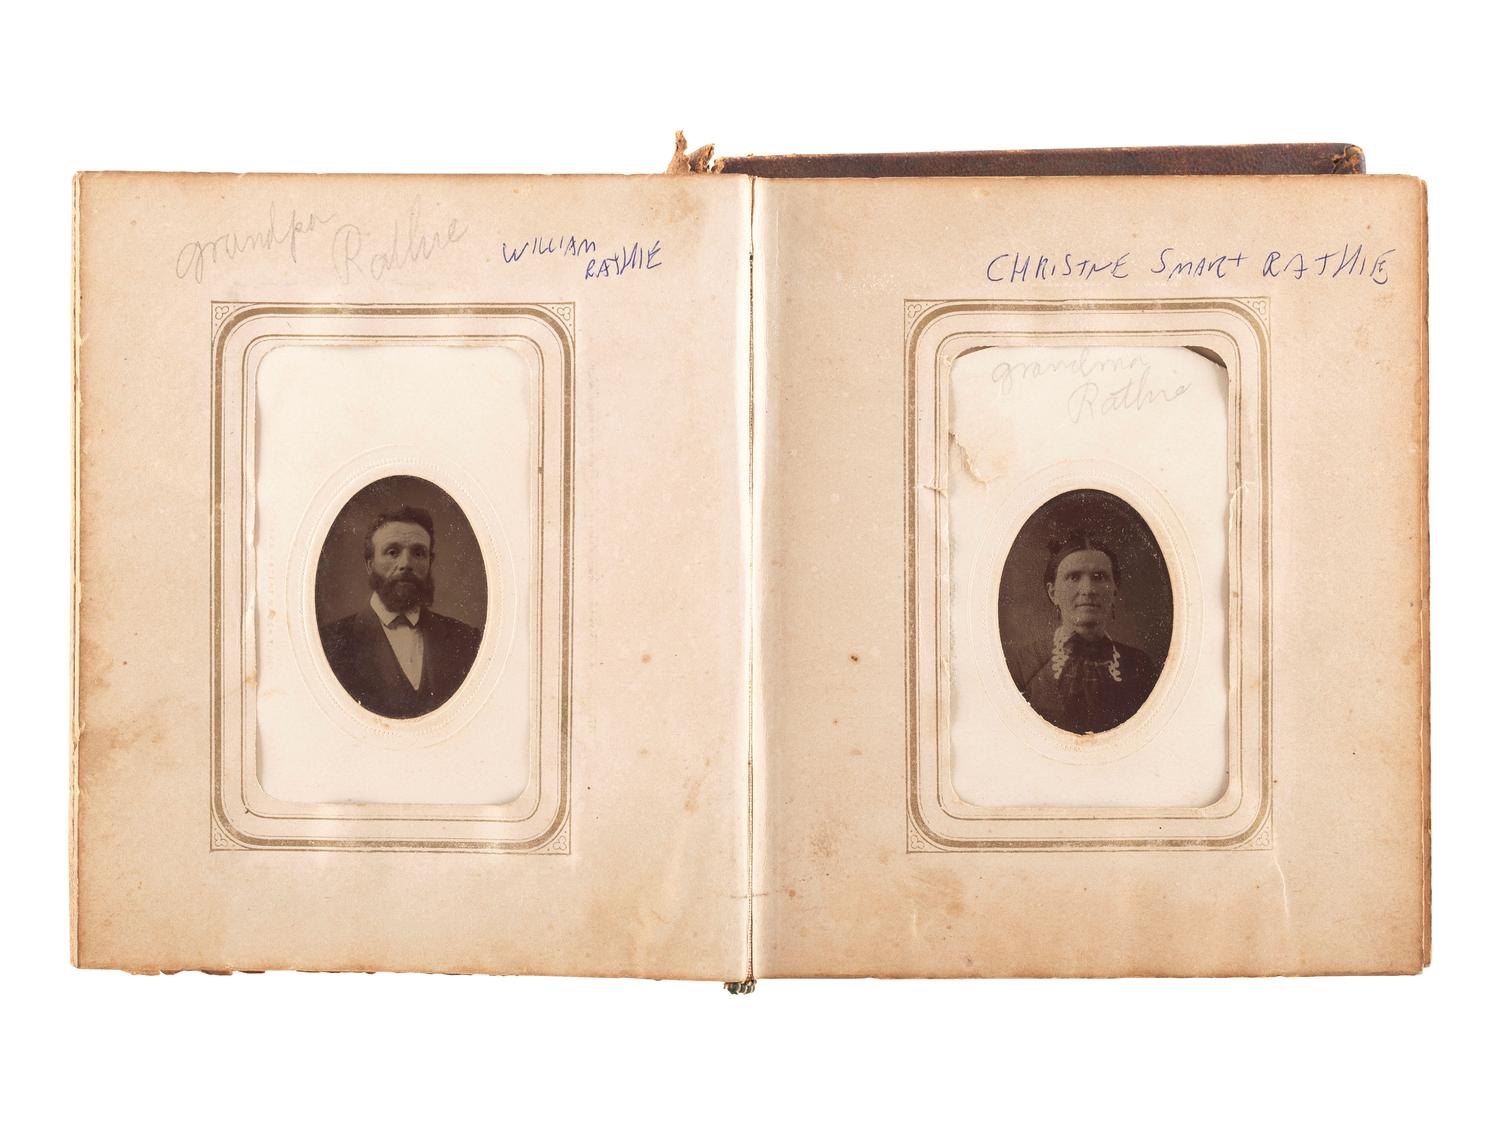 grandpa Rathie
WILLIAM
RATHIE
CHRISTNE SMART RATHIE
grandma
Rathie